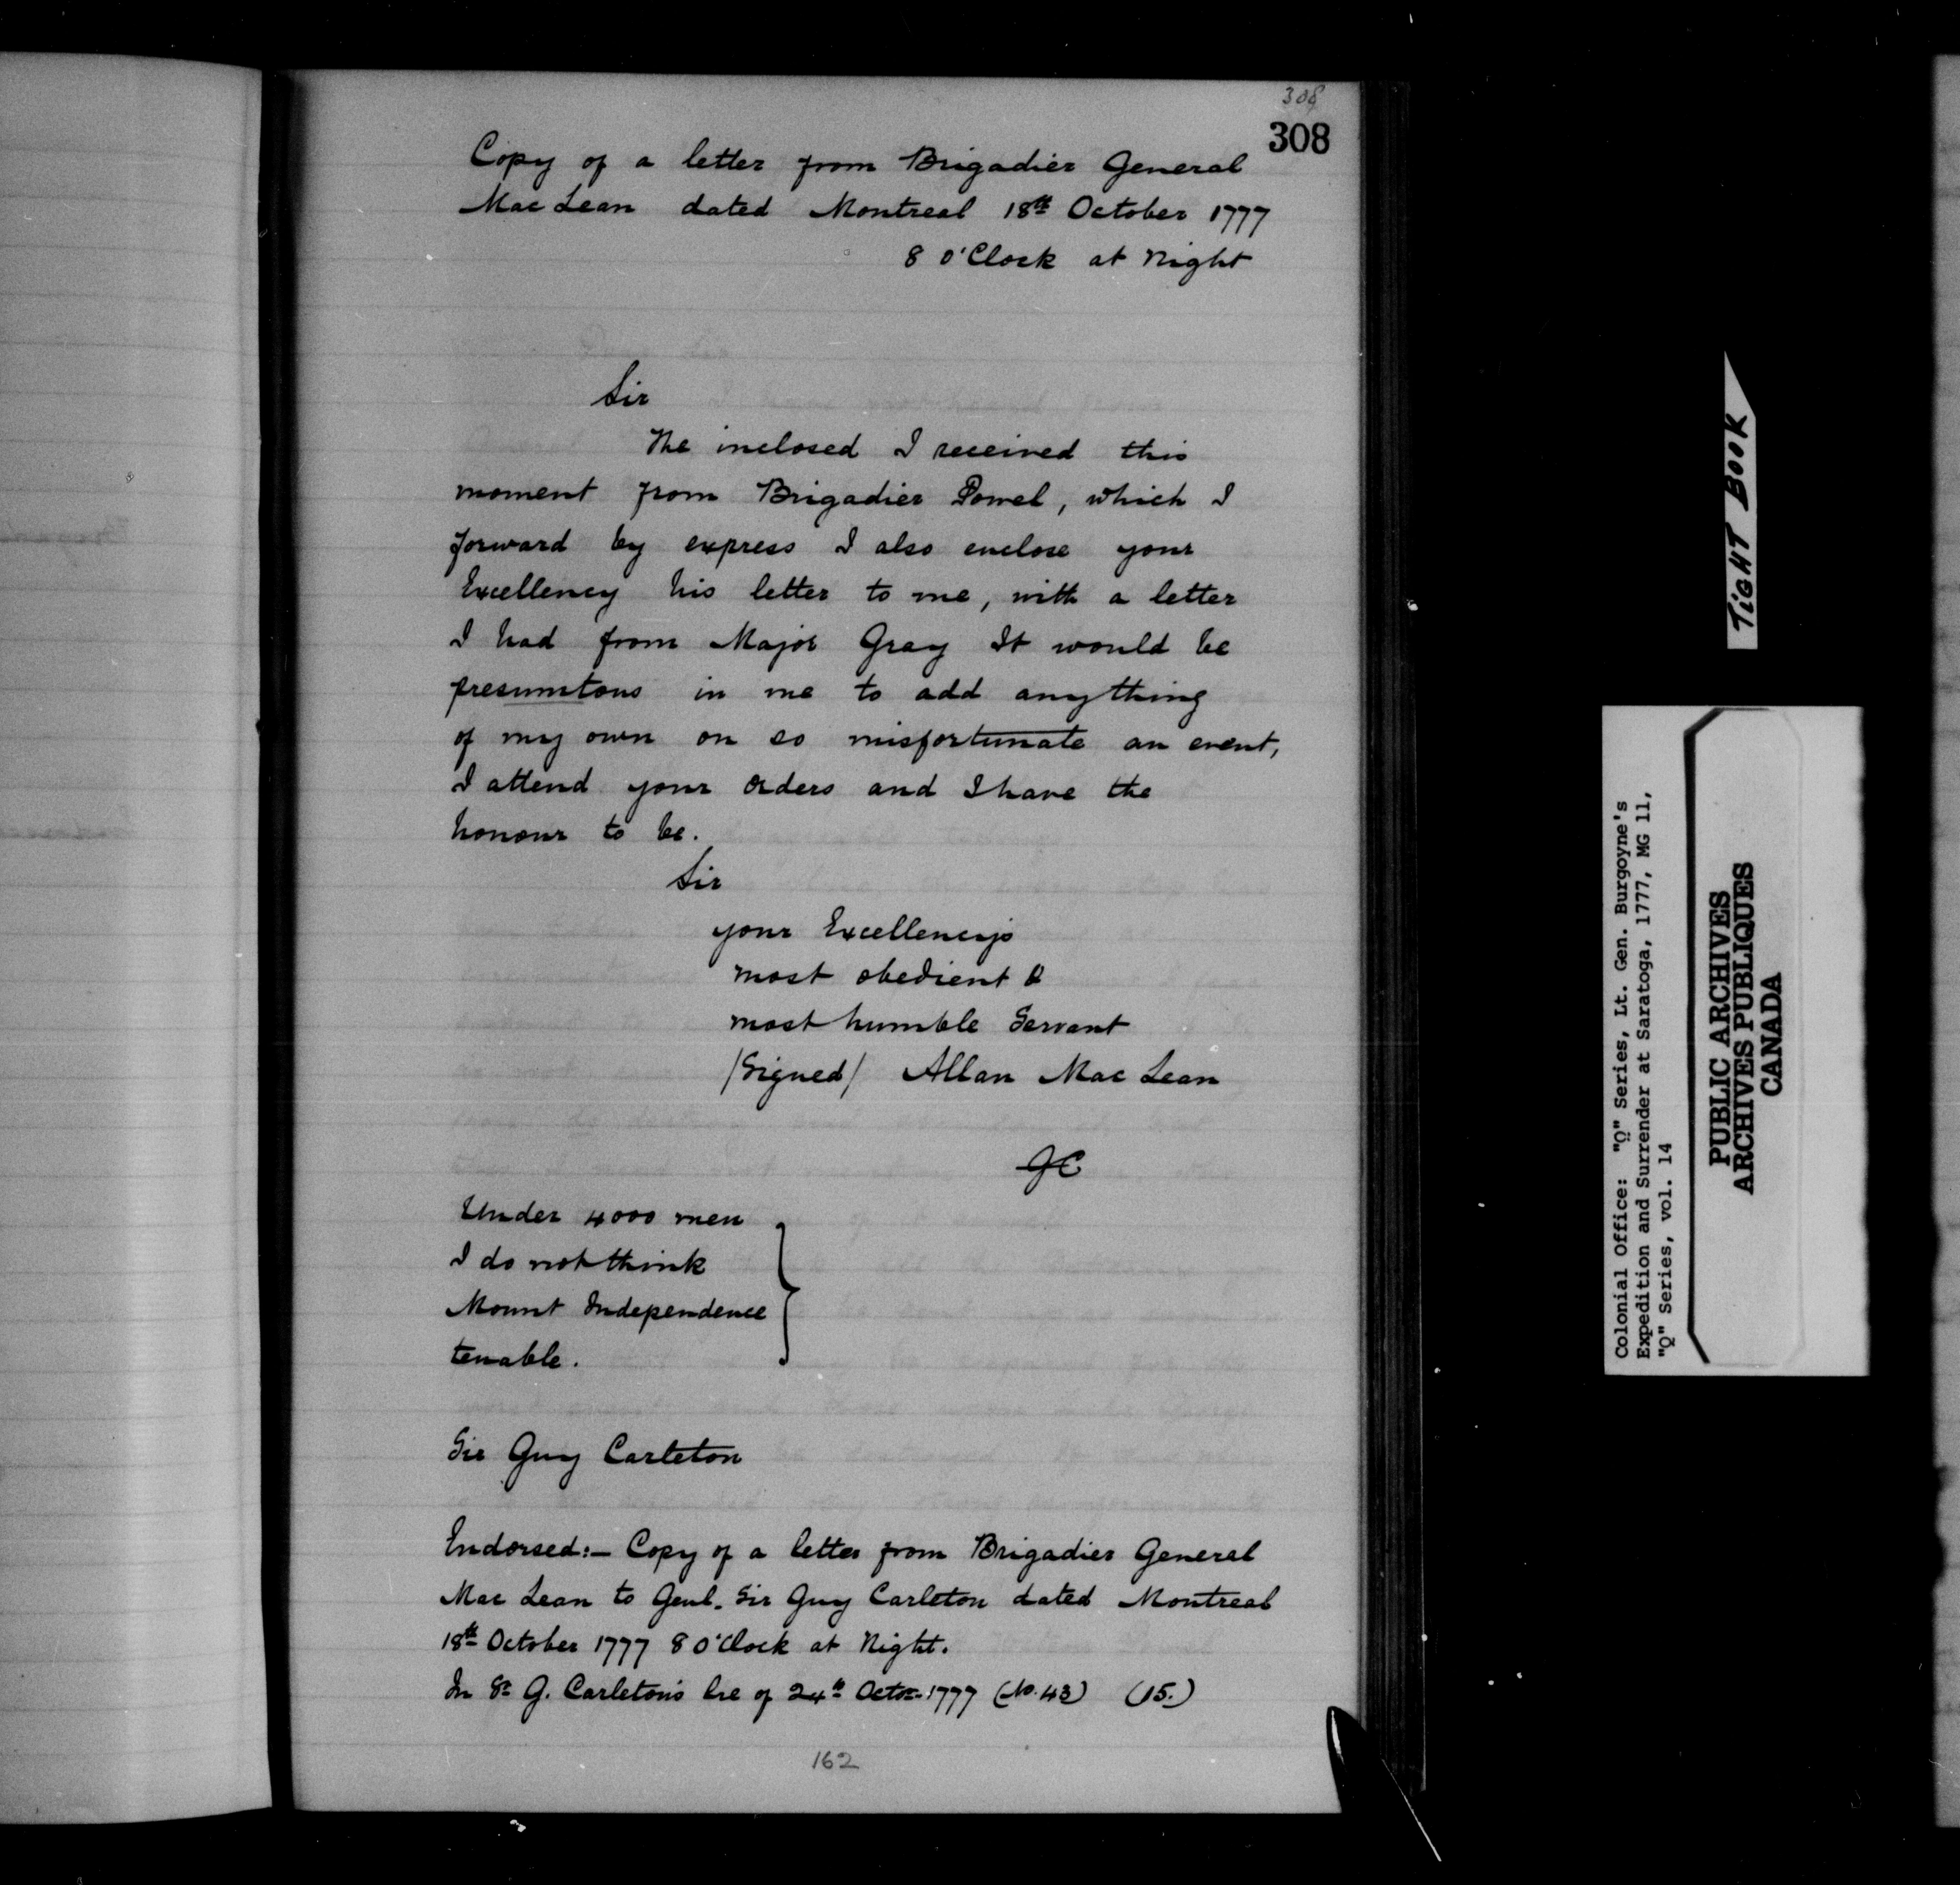 308
308
Copy of a letter from Brigadier General
Mac Lean dated Montreal 18th October 1777
8 O'Clock at Night
Sir
The inclosed I received this
moment from Brigadier Powel, which I
forward by express I also enclose your
Excellency his letter to me, with a letter
I had from Major Gray It would be
presumtous in me to add anything
of my own on so misfortunate an event,
I attend your orders and I have the
honour to be.
Sir
your Excellencys
most obedient &
most humble Servant
/Signed/ Allan Mac Lean
GC
Under 4000 men
I do not think
Mount Independence
tenable.
Sir Guy Carleton
Endorsed:- Copy of a letter from Brigadier General
Mac Lean to Genl. Sir Guy Carleton dated Montreal
18th October 1777 8 O'Clock at Night.
In Sr G. Carleton's lre of 24th Octor 1777 (No. 43) (15.)
162
TIGHT BOOK
Colonial Office: "Q" Series, Lt. Gen. Burgoyne's
Expedition and Surrender at Saratoga, 1777, MG 11,
"Q" Series, vol. 14
PUBLIC ARCHIVES
ARCHIVES PUBLIQUES
CANADA